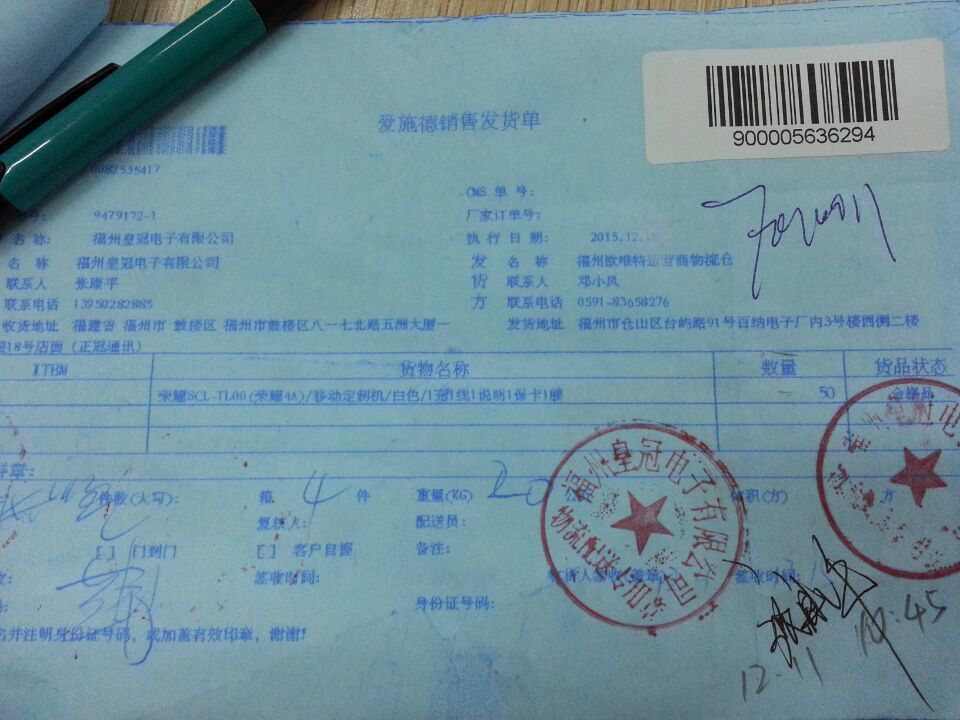 爱施德销售发货单
900005636294
0082538417
CMS 单 号:
号: 9479172-1
厂家订单号:
名 称: 福州皇冠电子有限公司
执 行 日 期: 2015.12.1
名 称 福州皇冠电子有限公司
发 名 称 福州欧唯特运营商物流仓
联系人 张康平
货 联系人 邓小凤
联系电话 13950282885
方 联系电话 0591-83658276
收货地址 福建省 福州市 鼓楼区 福州市鼓楼区八一七北路五洲大厦一
发货地址 福州市仓山区台屿路91号百纳电子厂内3号楼西侧二楼
层18号店面 (正冠通讯)
ITEM 货物名称 数量 货品状态
荣耀SCL-TL00(荣耀4A)/移动定制机/白色/1充1线1说明1保卡1膜 50 合格品
件数(大写): 箱 4 件 重量(KG) 20 体积(方) 方
复核人: 配送员:
[ ] 门到门 [ ] 客户自提 备注:
签收时间: 收货人签收(盖章) 签收时间:
身份证号码:
名并注明身份证号码, 或加盖有效印章, 谢谢!
福州皇冠电子有限公司
物流配送专用章
12.11 14:45